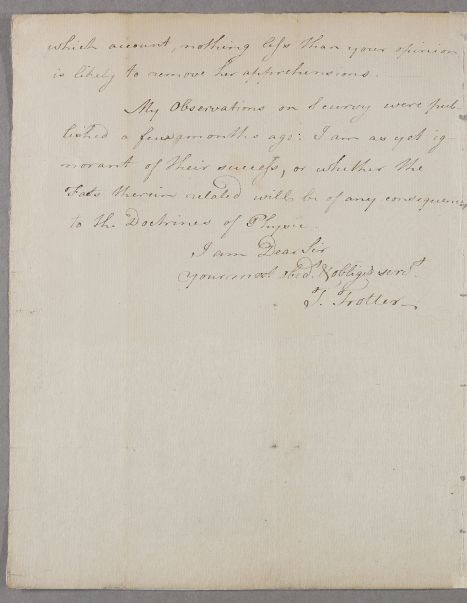 which account, nothing less than your opinion
is likely to remove her apprehensions.
My Observations on Scurvy were pub-
lished a few months ago: I am as yet ig-
norant of their success, or whether the
Facts therein related will be of any consequence
to the Doctrines of Physic.
I am Dear Sir
your most obedt. & obliged servt
T. Trotter